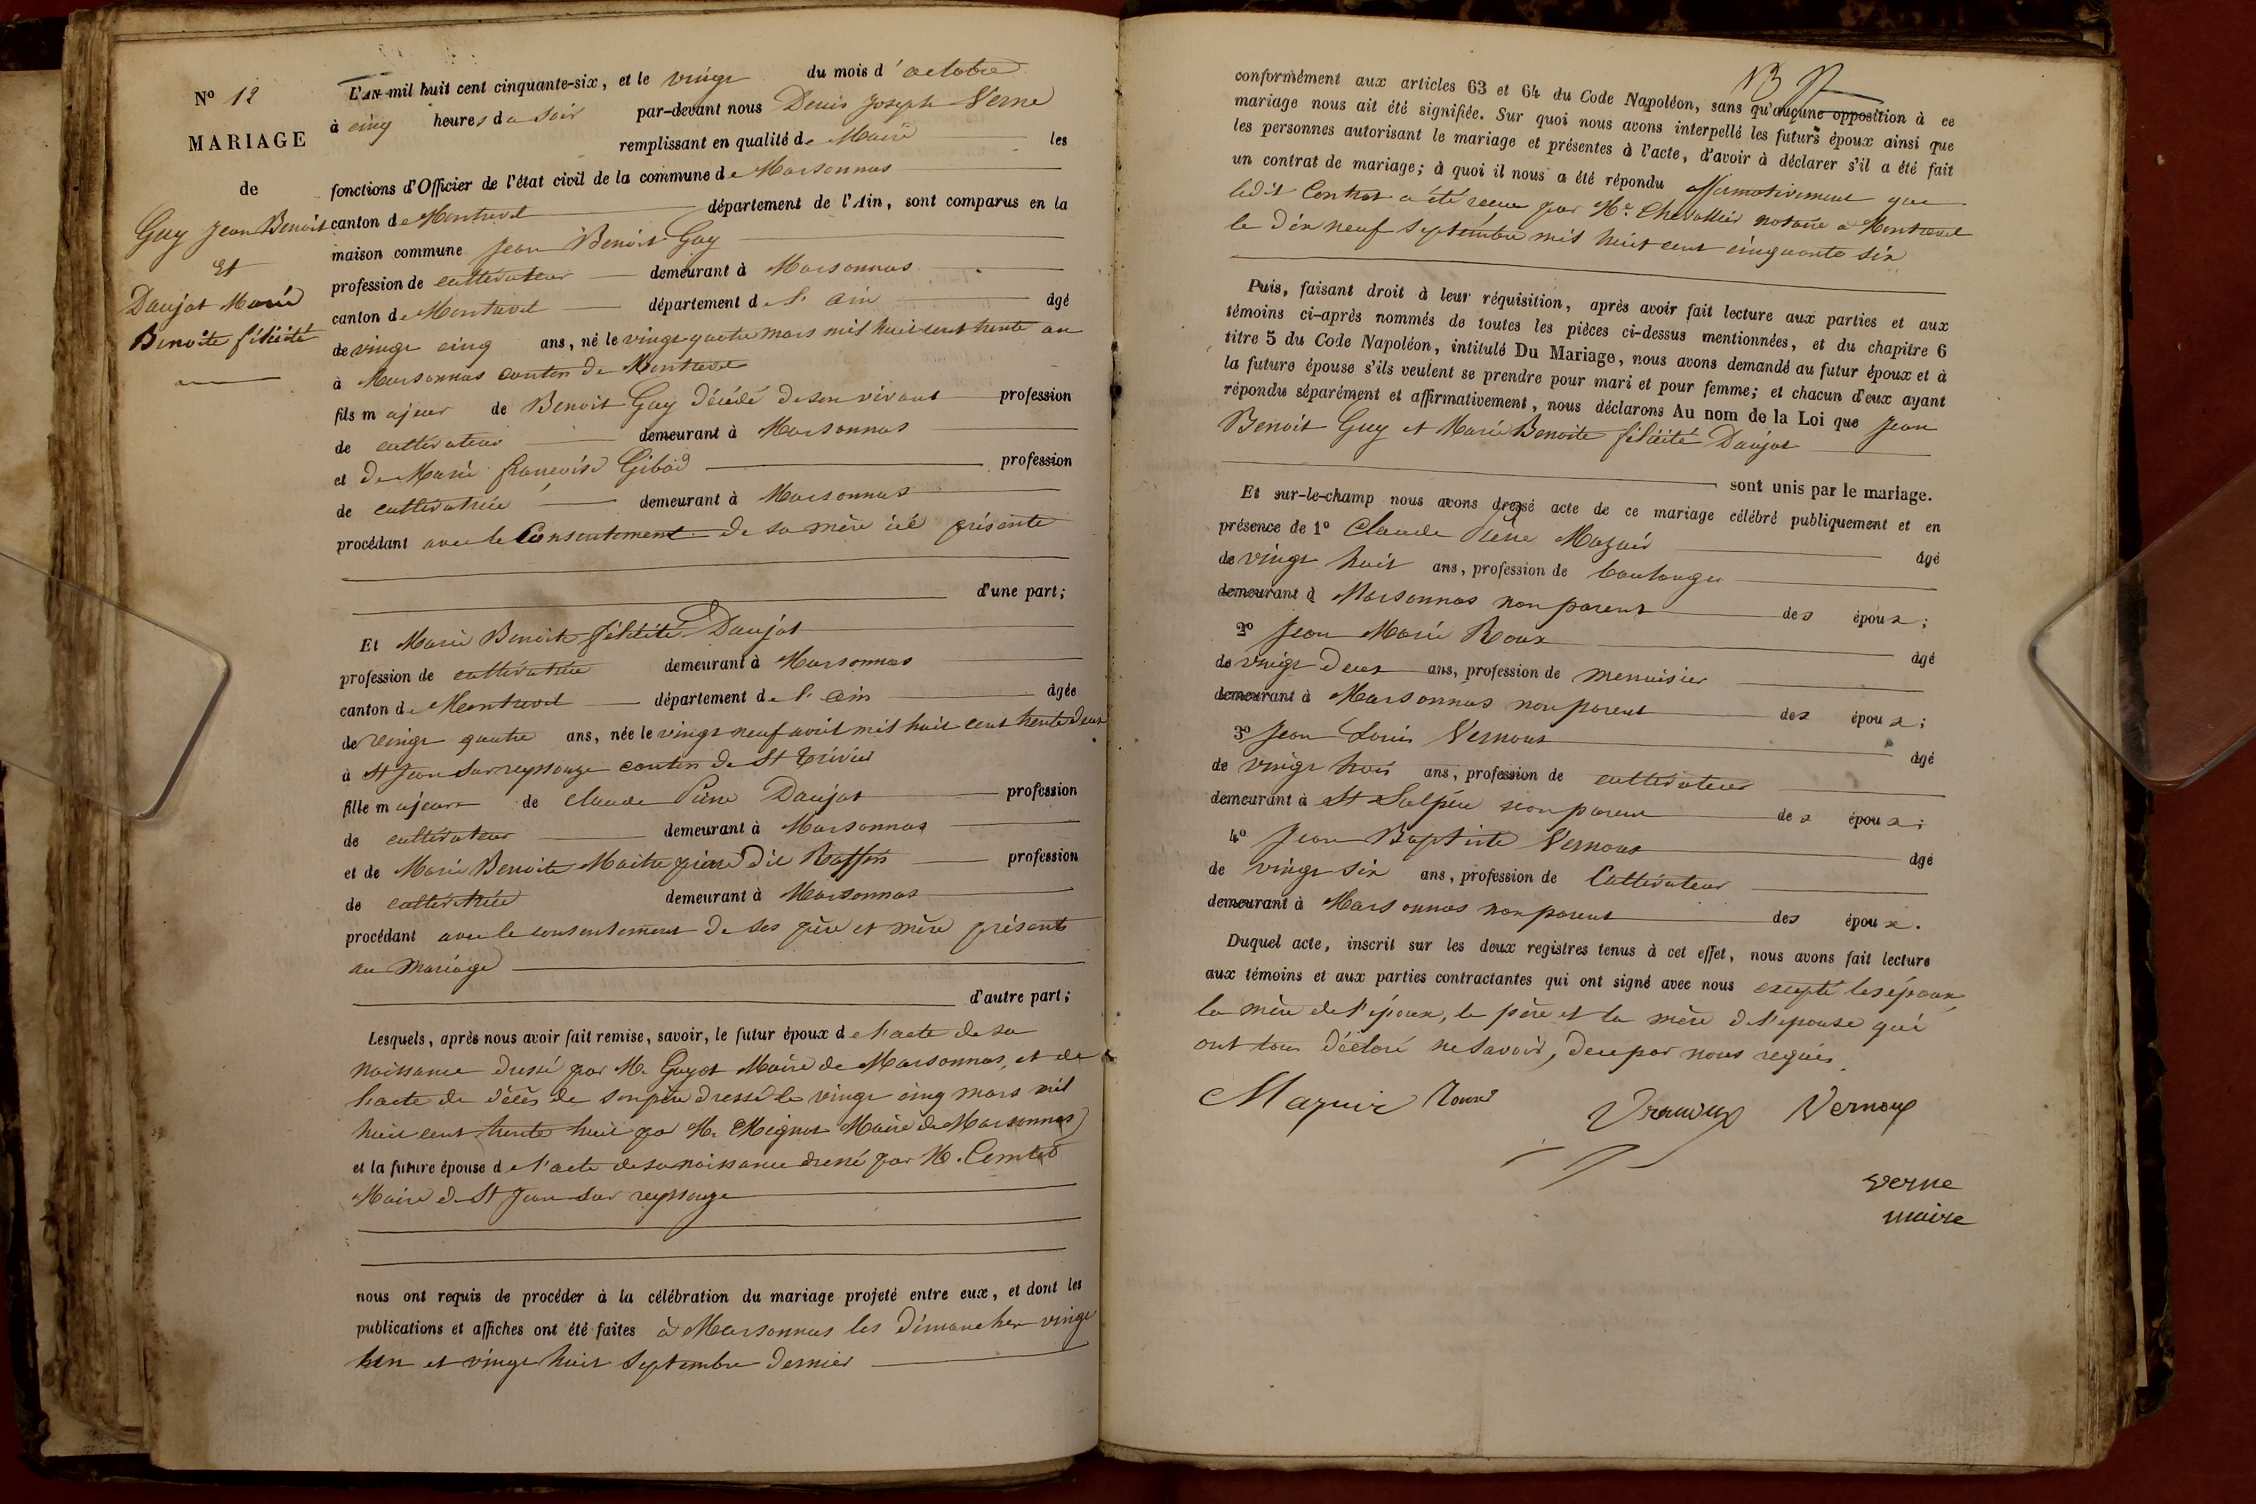 N° 12
MARIAGE
de
Guy Jean Benoit
et
Daujat Marie
Benoite félicité
L'AN mil huit cent cinquante-six, et le vingt du mois d'octobre
à cinq heures du soir par-devant nous Denis Joseph Verne
remplissant en qualité de Maire les
fonctions d'Officier de l'état civil de la commune de Marsonnas
canton de Montrevel département de l'Ain, sont comparus en la
maison commune Jean Benoit Guy
profession de cultivateur demeurant à Marsonnas
canton de Montrevel département de l'ain âgé
de vingt cinq ans, né le vingt quatre mars mil huit cent trente un
à Marsonnas canton de Montrevel
fils majeur de Benoit Guy décédé de son vivant profession
de cultivateur demeurant à Marsonnas
et de Marie françoise Gibod profession
de cultivatrice demeurant à Marsonnas
procédant avec le Consentement de sa mère ici présente
d'une part;
Et Marie Benoite félicité Daujat
profession de cultivatrice demeurant à Marsonnas
canton de Montrevel département de l'ain âgée
de vingt quatre ans, née le vingt neuf avril mil huit cent trente deux
à St Jean sur reyssouze canton de St trivier
fille majeure de claude Pierre Daujat profession
de cultivateur demeurant à Marsonnas
et de Marie Benoite Maitre pierre dit Raffin profession
de cultivatrice demeurant à Marsonnas
procédant avec le consentement de ses père et mère présents
au mariage
d'autre part;
Lesquels, après nous avoir fait remise, savoir, le futur époux de l'acte de sa
naissance dressé par M. Guyot Maire de Marsonnas, et de
l'acte de décès de son père dressé le vingt cinq mars mil
huit cent trente huit par M. Mignot Maire de Marsonnas
et la future épouse de l'acte de sa naissance dressé par M.
Maire de St Jean sur reyssouze
nous ont requis de procéder à la célébration du mariage projeté entre eux, et dont les
publications et affiches ont été faites à Marsonnas les dimanches vingt
un et vingt huit septembre dernier
conformément aux articles 63 et 64 du Code Napoléon, sans qu'aucune opposition à ce
mariage nous ait été signifiée. Sur quoi nous avons interpellé les futurs époux ainsi que
les personnes autorisant le mariage et présentes à l'acte, d'avoir à déclarer s'il a été fait
un contrat de mariage; à quoi il nous a été répondu affirmativement que
ledit Contrat a été recu par Me Chevallier notaire à Montrevel
le dix neuf septembre mil huit cent cinquante six
Puis, faisant droit à leur réquisition, après avoir fait lecture aux parties et aux
témoins ci-après nommés de toutes les pièces ci-dessus mentionnées, et du chapitre 6
titre 5 du Code Napoléon, intitulé Du Mariage, nous avons demandé au futur époux et à
la future épouse s'ils veulent se prendre pour mari et pour femme; et chacun d'eux ayant
répondu séparément et affirmativement, nous déclarons Au nom de la Loi que Jean
Benoit Guy et Marie Benoite félicité Daujat
sont unis par le mariage.
Et sur-le-champ nous avons dressé acte de ce mariage célébré publiquement et en
présence de 1° Claude Pierre Mazuir âgé
de vingt huit ans, profession de boulanger
demeurant à Marsonnas non parent des époux;
2° Jean Marie Roux âgé
de vingt deux ans, profession de menuisier
demeurant à Marsonnas non parent des époux;
3° Jean Louis Vernoux âgé
de vingt trois ans, profession de cultivateur
demeurant à St Sulpice non parent des époux;
4° Jean Baptiste Vernoux âgé
de vingt six ans, profession de Cultivateur
demeurant à Marsonnas non parent des époux.
Duquel acte, inscrit sur les deux registres tenus à cet effet, nous avons fait lecture
aux témoins et aux parties contractantes qui ont signé avec nous excepté les époux,
la mère de l'époux, le père et la mère de l'épouse qui
ont tous déclaré ne savoir, de ce par nous requis.
Mazuir Roux Vernoux Vernoux
verne
maire